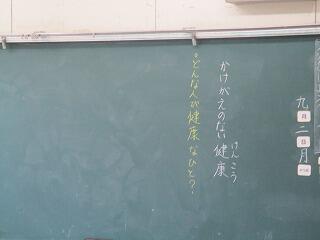 九月二日月
かけがえのない健康
けんこう
•どんな人が健康なひと？